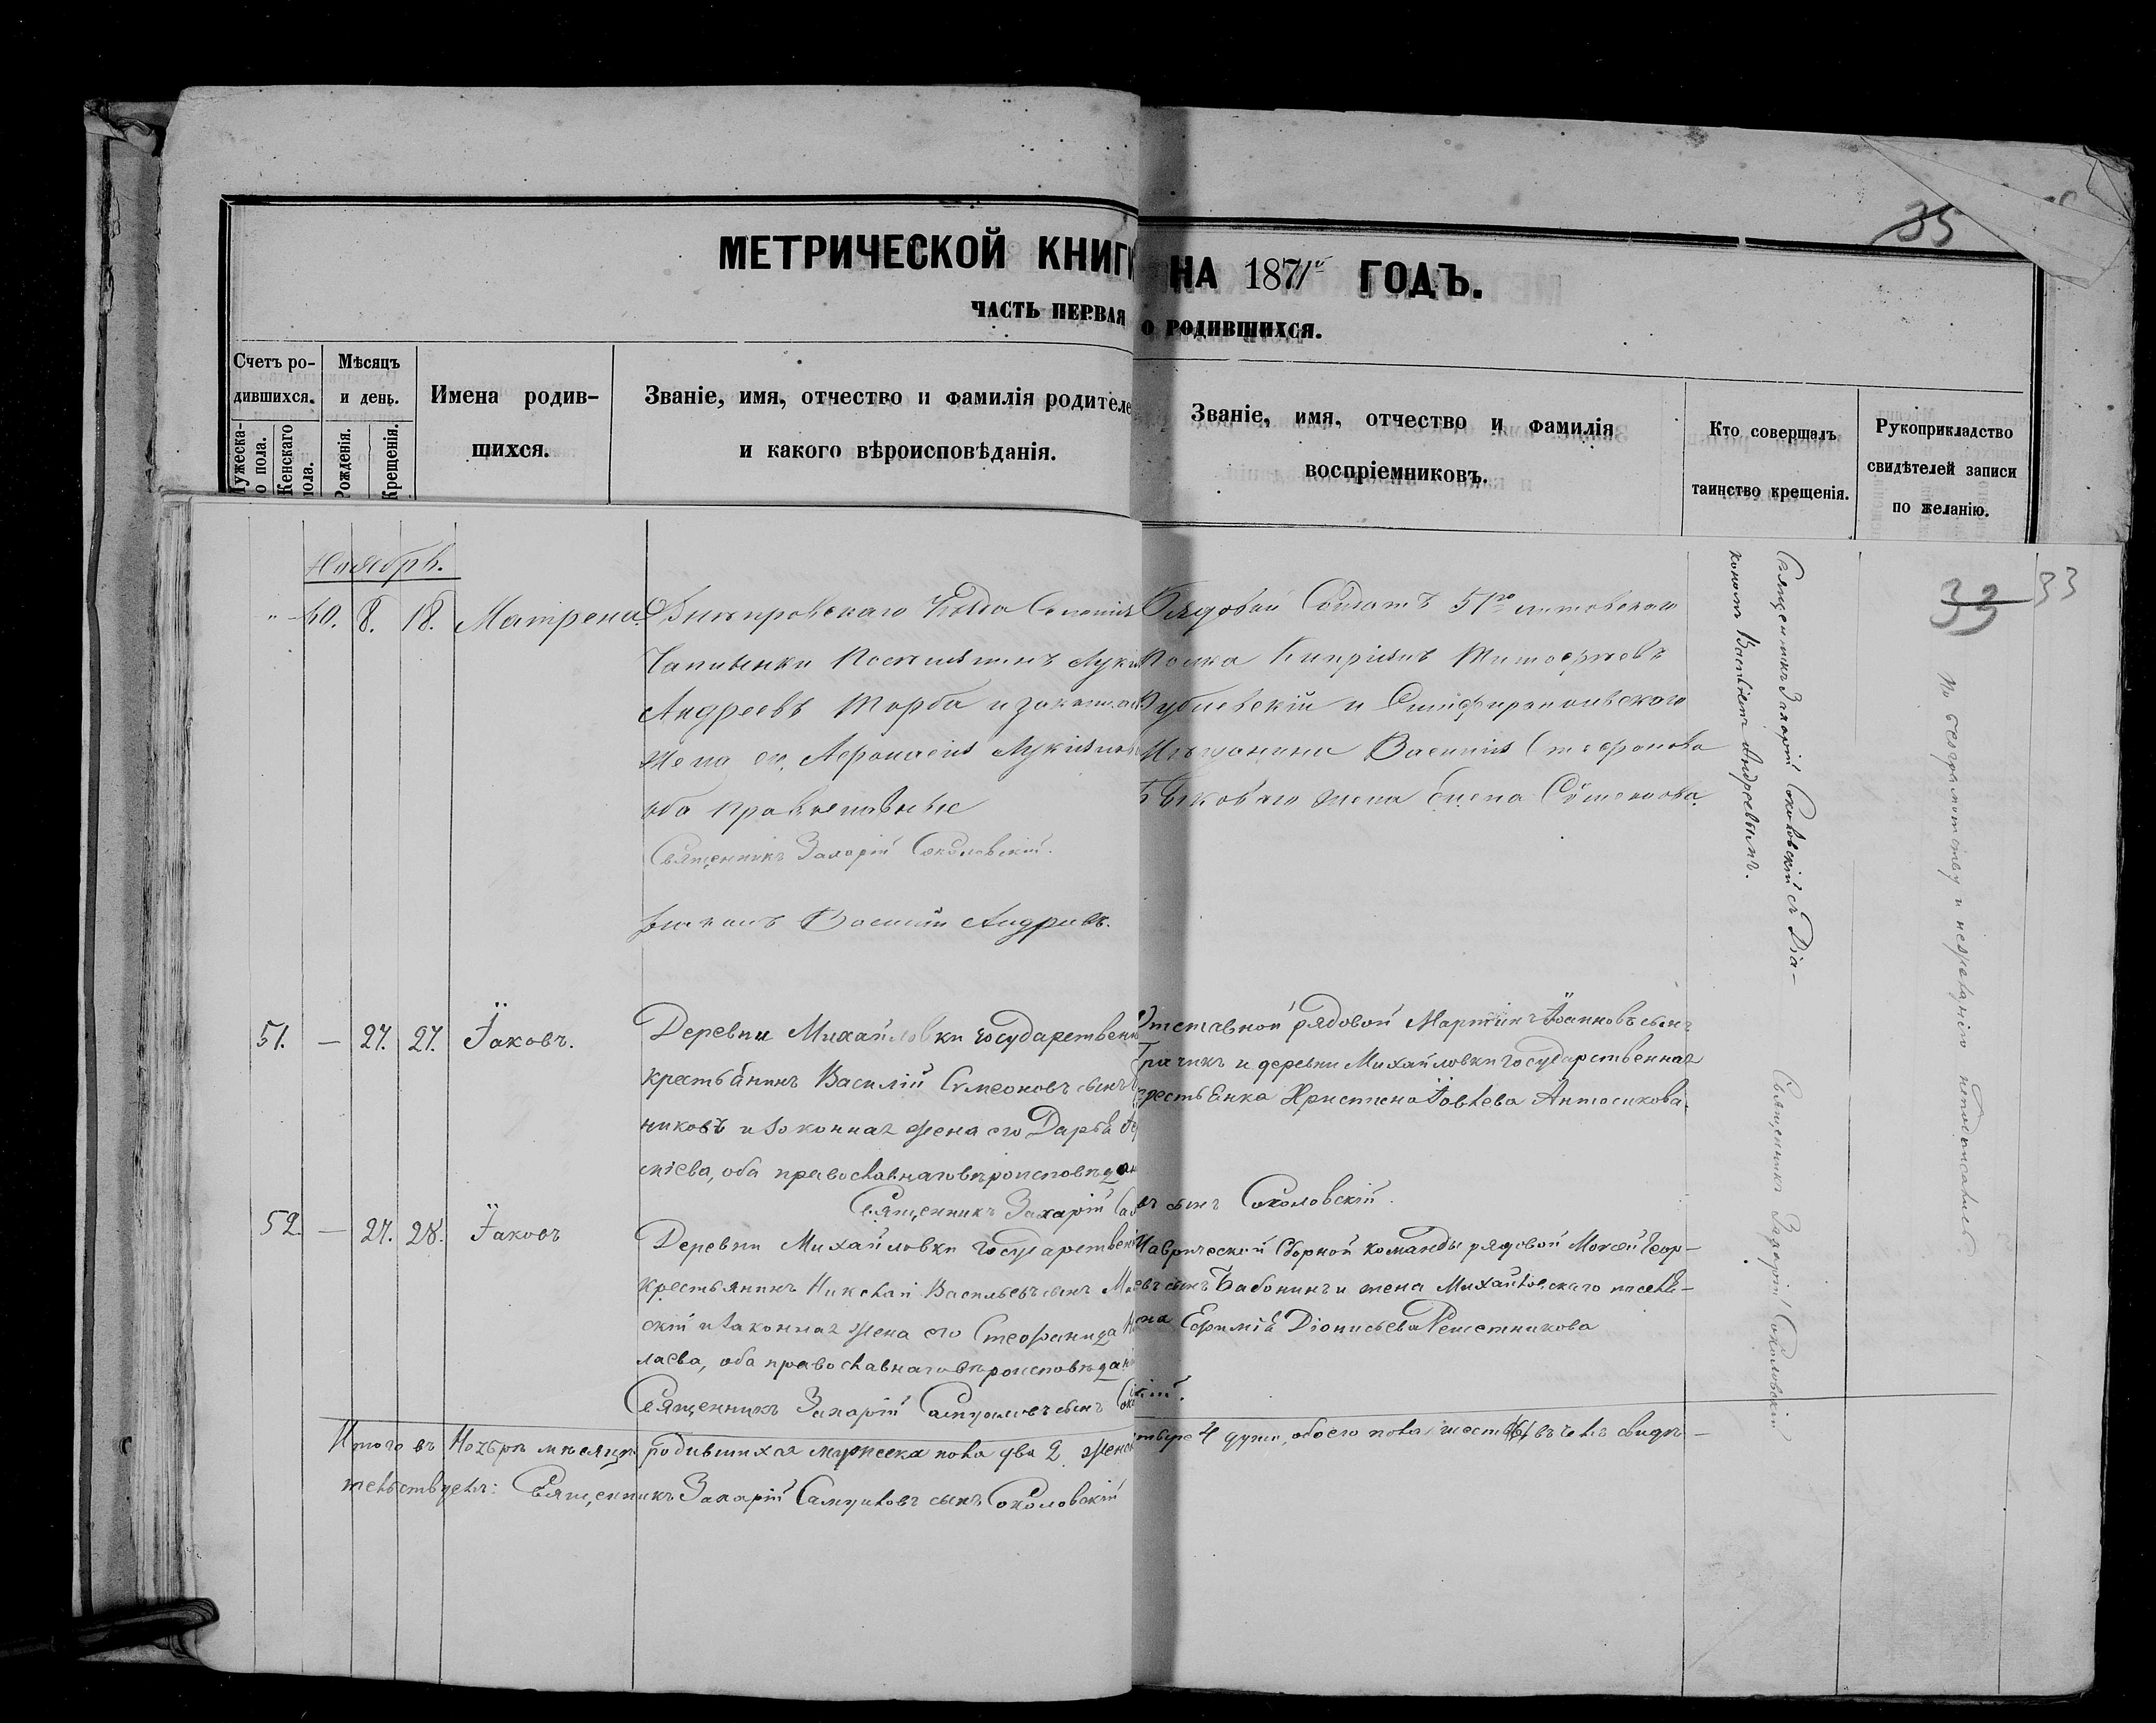 35
МЕТРИЧЕСКОЙ КНИГИ НА 1871й ГОДЪ.
ЧАСТЬ ПЕРВАЯ О РОДИВШИХСЯ.
Счетъ ро-
дившихся.
Мужеска-
о пола.
Женскаго
пола.
Мѣсяцъ
и день.
Рожденія.
Крещенія.
Имена родив-
шихся.
Званіе, имя, отчество и фамилія родителе
и какого вѣроисповѣданія.
Званіе, имя, отчество и фамилія
воспріемниковъ.
Кто совершалъ
таинство крещенія.
Рукоприкладство
свидѣтелей записи
по желанію.
33 33
Ноябрь.
" 40. 8. 18. Матрена
Днѣпровскаго
Чаплынки Поселянинъ
Андреевъ Торба и законная
Жена его
оба православные
Священникъ Захарій Соколовскій.
Діаконъ Василій Андреевъ.
Рядовой Солдатъ 51го Литовскаго
Полка Кипріанъ
и Симферопольскаго
Мѣщанина Василія Стефанова
жена Елена
Священникъ Захарій Соколовскій съ Діа-
кономъ Василіемъ Андреевымъ.
По безграмотству и нежеланію неподписались
51. — 27. 27. Іаковъ.
Деревни Михайловки государственн
крестьянинъ Василій Симеоновъ сынъ
никовъ и законная жена его Дарья
оба православнаго вѣроисповѣдан
Священникъ Захарій Са въ сынъ Соколовскій.
Отставной рядовой Мартинъ Іоанновъ сынъ
Грачикъ и деревни Михайловки государственная
крестьянка Христина Іовлева Антосикова.
52. — 27. 28. Іаковъ
Деревни Михайловки государствен
крестьянинъ Николай Васильевъ сынъ
скій и законная жена его Стефанида
лаева, оба православнаго вѣроисповѣдан
Священникъ Захарій Самуиловъ сынъ Соколовскій.
Таврической Сборной команды рядовой Моисей Геор-
евъ сынъ Бабонинъ и жена Михайловскаго поселя-
нина Евфимія Діонисьева Решетникова
Священникъ Захарій Соколовскій
Итого въ Ноябрѣ мѣсяцѣ родившихся мужеска пола два 2 женск четыре 4 души, обоего пола шесть /6/ въ чемъ свидѣ-
тельствуетъ: Священникъ Захарій Самуиловъ сынъ Соколовскій